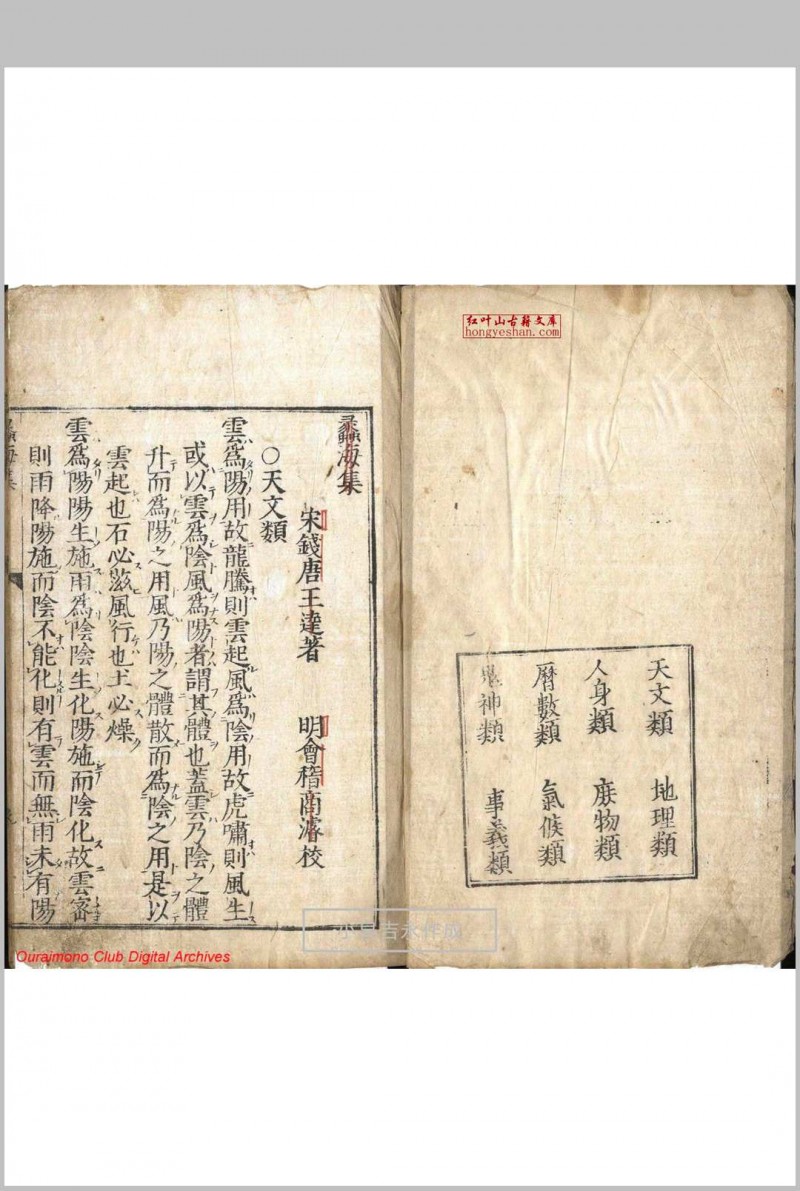 红叶山古籍文库
hongyeshan.com
天文類 地理類
人身類 庶物類
曆數類 氣候類
鬼神類 事義類
蠡海集
宋錢唐王逵著 明會稽商濬校
○天文類
雲爲陽用故龍騰則雲起風爲陰用故虎嘯則風生
或以雲爲陰風爲陽者謂其體也蓋雲乃陰之體
升而爲陽之用風乃陽之體散而爲陰之用是以
雲起也石必滋風行也土必燥
雲爲陽陽生施雨爲陰陰生化陽施而陰化故雲密
則雨降陽施而陰不能化則有雲而無雨未有陽
蠡海集
Ouraimono Club Digital Archives